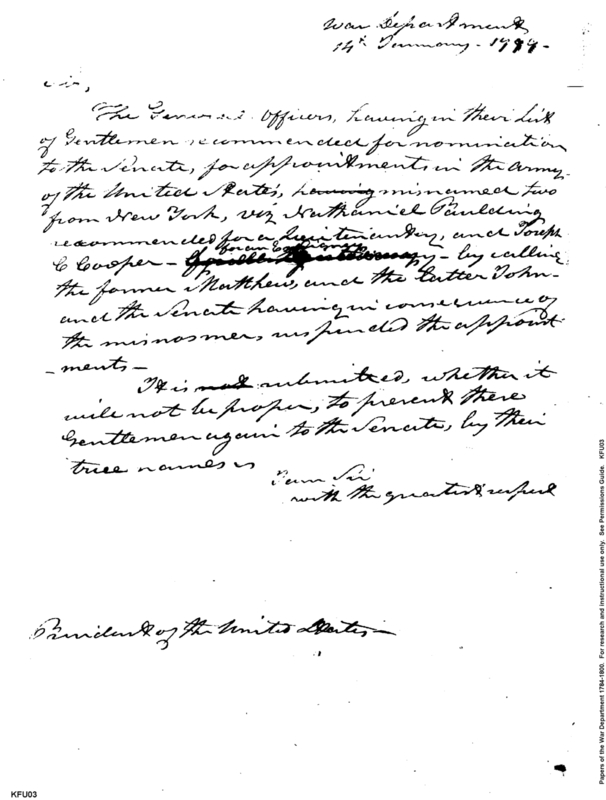 War Department
14th January - 1799 -
Sir,
The General Officers, having in their List
of Gentlemen recommended for nomination
to the Senate, for appointments in the army
of the United States, having misnamed two
from New York, viz Nathaniel Paulding
recommended for a Lieutenantcy, and Joseph
C Cooper - for an Ensigncy - by calling
the former Matthew, and the latter John -
and the Senate having in consequence of
the misnosmer, suspended the appoint
- ments -
It is not submitted, whether it
will not be proper, to present these
Gentlemen again to the Senate, by their
true names
I am Sir
with the greatest respect
President of the United States -
KFU03
Papers of the War Department 1784-1800. For research and instructional use only. See Permissions Guide. KFU03